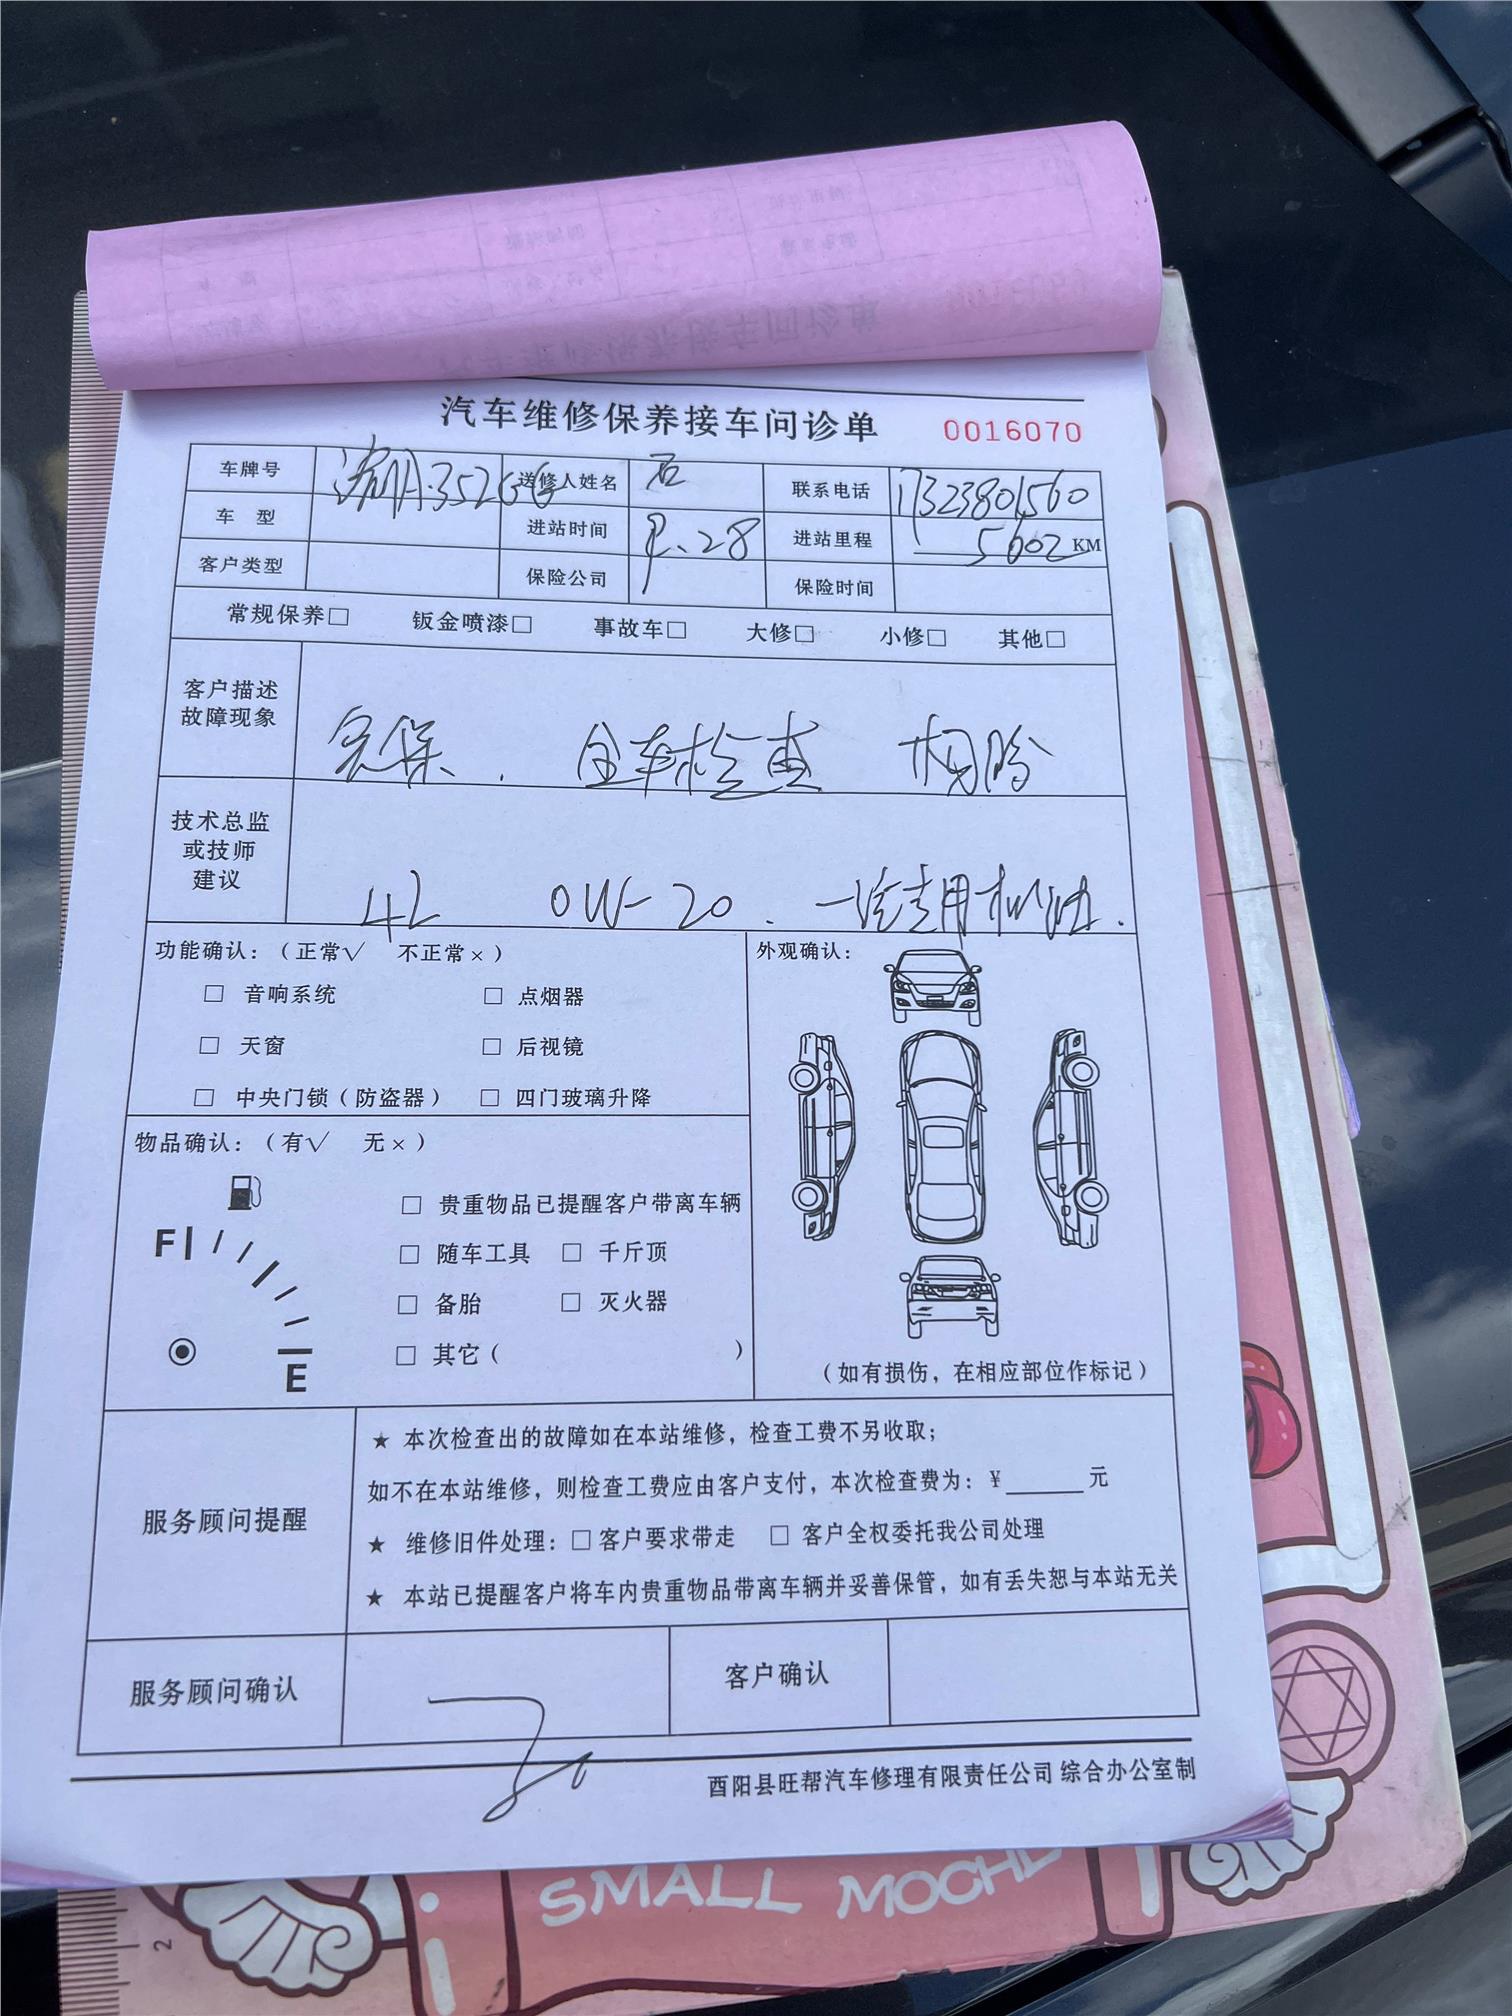 汽车维修保养接车问诊单 0016070
车牌号 送修人姓名 石 联系电话 17323801560
车 型 进站时间 28 进站里程 5602 KM
客户类型 保险公司 保险时间
常规保养□ 钣金喷漆□ 事故车□ 大修□ 小修□ 其他□
客户描述
故障现象
保、. 全车检查
技术总监
或技师
建议
4L 0W-20. 一汽专用机油.
功能确认：（正常√ 不正常×）
□ 音响系统 □ 点烟器
□ 天窗 □ 后视镜
□ 中央门锁（防盗器） □ 四门玻璃升降
外观确认：
（如有损伤，在相应部位作标记）
物品确认：（有√ 无×）
F
E
□ 贵重物品已提醒客户带离车辆
□ 随车工具 □ 千斤顶
□ 备胎 □ 灭火器
□ 其它（ ）
服务顾问提醒
★ 本次检查出的故障如在本站维修，检查工费不另收取；
如不在本站维修，则检查工费应由客户支付，本次检查费为：¥______元
★ 维修旧件处理：□客户要求带走 □ 客户全权委托我公司处理
★ 本站已提醒客户将车内贵重物品带离车辆并妥善保管，如有丢失恕与本站无关
服务顾问确认 客户确认
酉阳县旺帮汽车修理有限责任公司 综合办公室制
SMALL
2